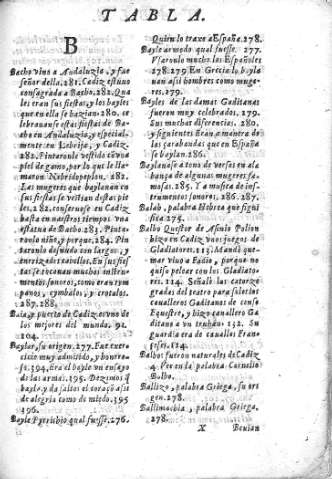 TABLA.
B
Bacho vino a Andaluzia, y fue
señor della. 281. Cadiz estuuo
consagrada a Bacho. 282. Qua
les eran sus fiestas, y los bayles
que en ella se hazian. 280. ce
lebrauanse estas fiestas de Ba-
cho en Andaluzia, y especial-
mente en Lebrija, y Cadiz.
282. Pintaronle vestido cō vna
piel de gamo, por lo que le lla-
maron Nebridopeplon. 282.
Las mugeres que baylauan en
sus fiestas se vestian destas pie
les. 282. conseruose en Cadiz
hasta en nuestros tiempos vna
estatua de Bacho. 283. Pinta-
ronle niño, y porque. 284. Pin
taronlo desnudo con largos, y
enrizados cauellos. En sus fies
tas se tocauan muchos instru-
mentos sonoros, como eran tym
panos, symbalos, y crotalos.
287. 288.
Baia, y puerto de Cadiz es vno de
los mejores del mundo. 92.
104.
Bayler, su origen. 277. Fue exer-
cicio muy admitido, y honrra-
so. 394. Era el bayle vn ensayo
de las armas. 395. Dezimos q̄
bayle y da saltos el coraçō assi
de alegria como de miedo. 395
396.
Bayle Pyrrichio qual fuesse. 276.
Quien lo traxo a España. 278.
Bayle armado qual fuesse. 277.
Vsaronlo mucho los Españoles
278. 279. En Grecia lo bayla
uan assi hombres como muge-
res. 279.
Bayles de las damas Gaditanas
fueron muy celebrados. 279.
Sus muchas diferencias. 280.
y siguientes Eran a manera de
las çarabandas que en España
se baylan. 286.
Baylauase a tono de versos en ala
bança de algunas mugeres fa-
mosas. 285. Y a musica de ins-
trumentos sonoros. 286. 287.
Balab, palabra Hebrea que signi
fica 275.
Balbo Questor de Asinio Polion
hizo en Cadiz vnos juegos de
Gladiatores. 113. Mandò que-
mar viuo a Fadio, porque no
quiso pelear con los Gladiato-
res. 114. Señalò las catorze
gradas del teatro para solo los
caualleros Gaditanos de censo
Equestre, y hizo cauallero Gadi
tano a vn truhan. 132. Su
guardia era de caualles Fran-
ceses. 114.
Balbos fueron naturales de Cadiz
4. Vee en la palabra Cornelio
Balbo.
Ballizo, palabra Griega, su ori
gen. 278.
Ballimachia, palabra Griega.
278.
X